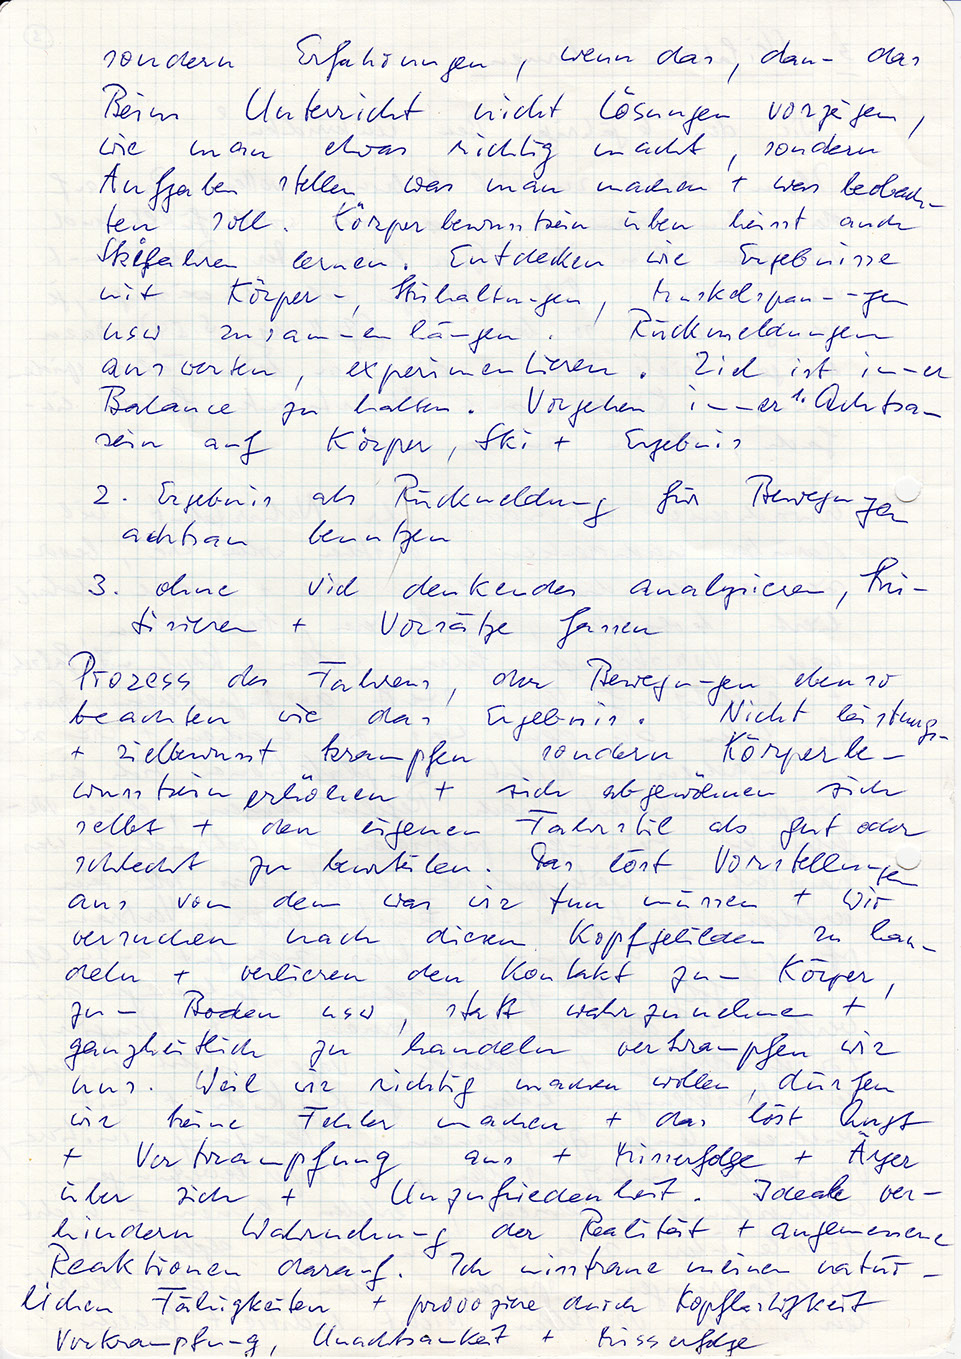 sondern Erfahrungen, wenn das, dann das
Beim Unterricht nicht Lösungen vorzeigen,
wie man etwas richtig macht, sondern
Aufgaben stellen was man machen + was beobach-
ten soll. Körperbewusstsein üben heisst auch
Skifahren lernen. Entdecken wie Ergebnisse
mit Körper-, Skihaltungen, Muskelspannungen
usw zusammenhängen. Rückmeldungen
auswerten, experimentieren. Ziel ist immer
Balance zu halten. Vorgehen immer 1. Achtsam
sein auf Körper, Ski + Ergebnis
2. Ergebnis als Rückmeldung für Bewegungen
achtsam benutzen
3. ohne viel denkendes analysieren, kri-
tisieren + Vorsätze fassen
Prozess des Fahrens, der Bewegungen ebenso
beachten wie das Ergebnis. Nicht leistungs-
+ zielbewusst krampfen sondern Körperbe-
wusstsein erhöhen + sich abgewöhnen sich
selbst + den eigenen Fahrstil als gut oder
schlecht zu beurteilen. Das löst Vorstellungen
aus von dem was wir tun müssen + wir
versuchen nach diesen Kopfgebilden zu han-
deln + verlieren den Kontakt zum Körper,
zum Boden usw, statt wahrzunehmen +
ganzheitlich zu handeln verkrampfen wir
uns. Weil wir richtig machen wollen, dürfen
wir keine Fehler machen + das löst Angst
+ Verkrampfung aus + Misserfolge + Ärger
über sich + Unzufriedenheit. Ideale ver-
hindern Wahrnehmung der Realität + angemessene
Reaktionen darauf. Ich misstraue meinen natür-
lichen Fähigkeiten + provoziere durch Kopflastigkeit
Verkrampfung, Unachtsamkeit + Misserfolge